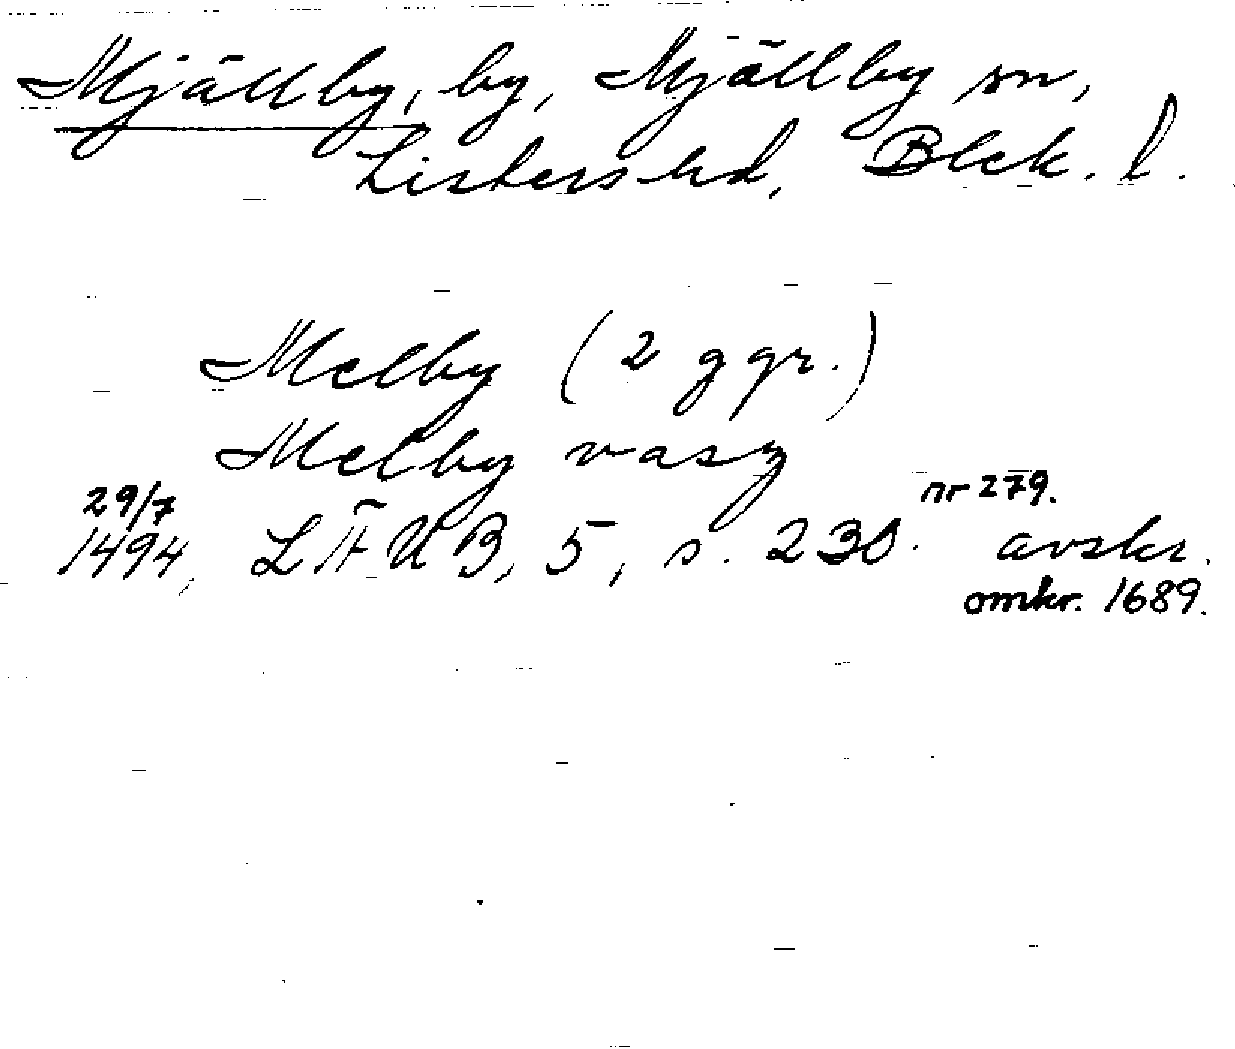 Mjällby, by, Mjällby sn,
Listers hd, Blek. l.
Melby (2 ggr.)
Melby wasz
29/7 nr 279.
1494, LÄUB, 5, s. 230. avskr.
omkr. 1689.